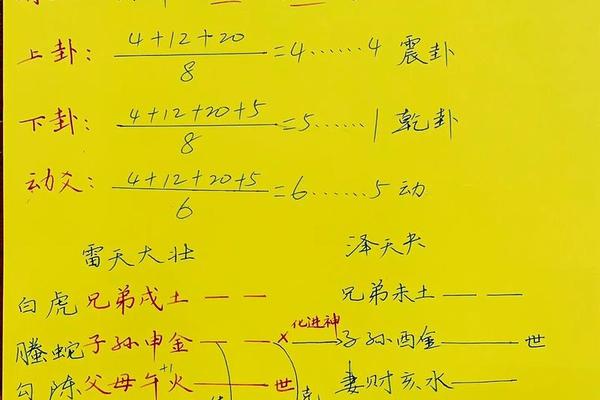 上卦: 4+12+20/8=4……4 震卦
下卦: 4+12+20+5/8=5……1 乾卦
动爻: 4+12+20+5/6=6……5 动
雷天大壮 泽天夬
白虎 兄弟戌土 — — 兄弟未土 — —
螣蛇 子孙申金 — — × 化进神 子孙酉金 —— 世
勾陈 父母午火 —— 世 +1 克 妻财亥水 ——